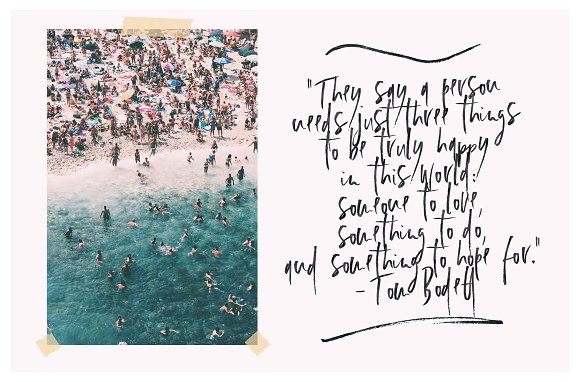 "They say a person
needs just three things
to be truly happy
in this world:
someone to love,
something to do,
and something to hope for."
- Tom Bodett